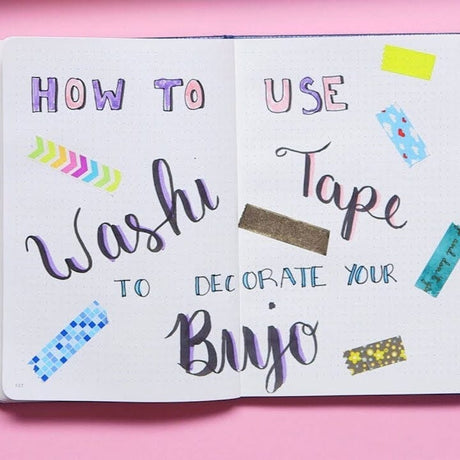 HOW TO USE
Washi Tape
TO DECORATE YOUR
Bujo